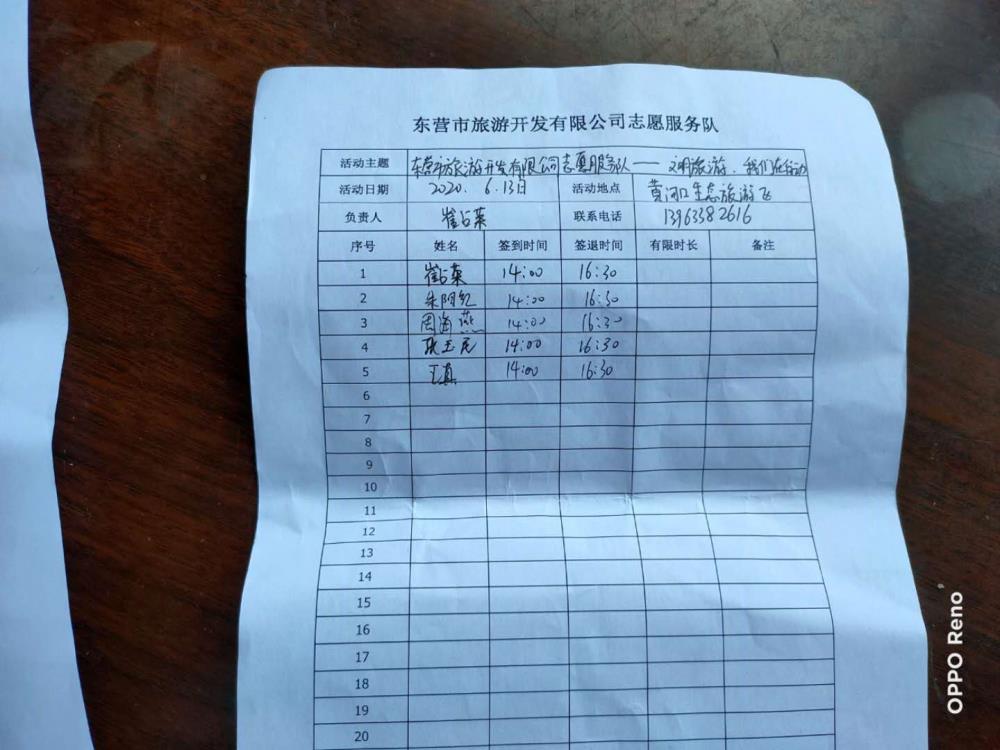 东营市旅游开发有限公司志愿服务队
活动主题 东营市旅游开发有限公司志愿服务队——文明旅游,我们在行动
活动日期 2020.6.13日 活动地点 黄河口生态旅游区
负责人 崔占英 联系电话 13963382616
序号 姓名 签到时间 签退时间 有限时长 备注
1 崔占英 14:00 16:30
2 14:00 16:30
3 周海燕 14:00 16:30
4 14:00 16:30
5 王真 14:00 16:30
6
7
8
9
10
11
12
13
14
15
16
17
18
19
20
OPPO Reno